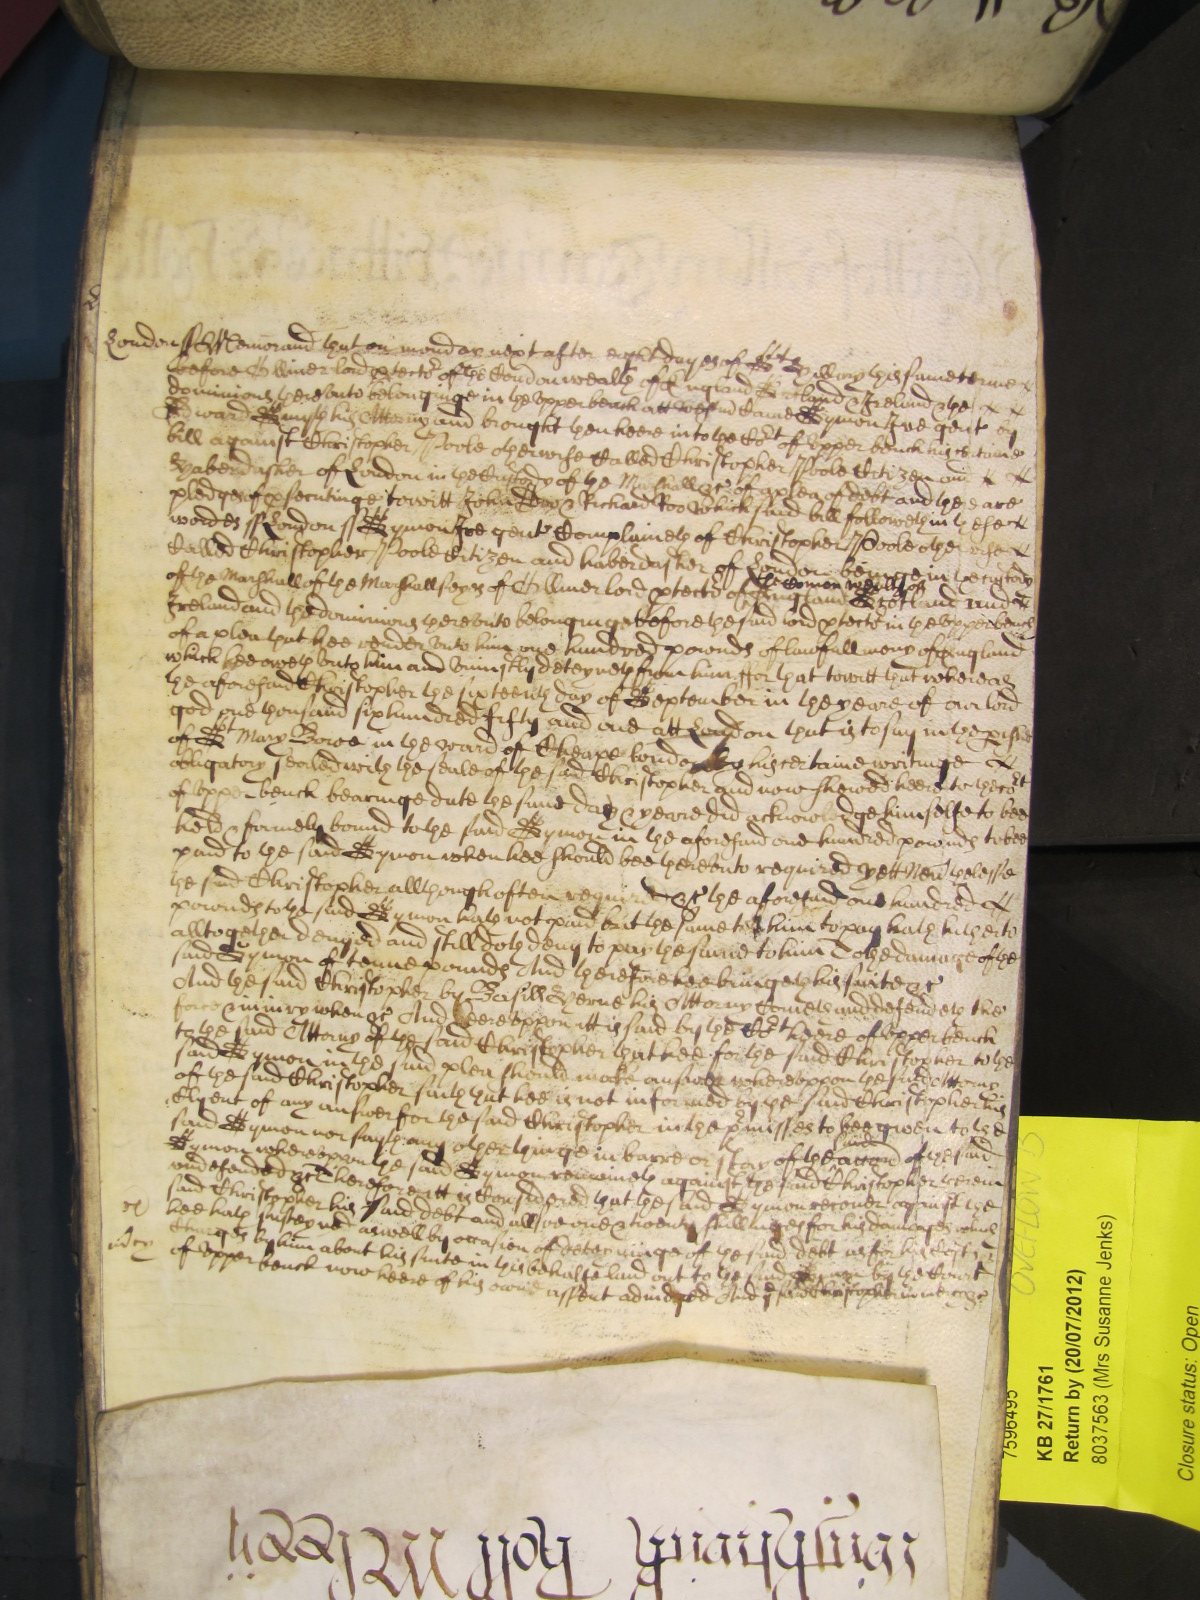 London ss Memorand that on monday next after eight dayes of St Hillary this same terme
before Olliver lord ptector of the Comonwealth of England Scotland & Ireland & the
dominions thereunto belonginge in the upper bench att Westm Came Symon Ive gent by
Edward Smyth his Attorny and brought then heere into the Cort of upper bench his certaine
bill against Christopher Poole otherwise Called Christopher Poole Citizen and
haberdasher of London in the Custody of the Marshall &c of a plea of debt and there are
pledges of psecutinge towitt John Doo & Richard Roo which said bill followeth in these
wordes ss London ss Symon Ive gent Complaineth of Christopher Poole otherwise
Called Christopher Poole Citizen and haberdasher of London beinge in the custody
of the Marshall of the Marshallseyes of Olliver lord ptector of the Comon wealth of England Scotland and
Ireland and the dominions thereunto belonginge before the said lord ptector in the upper bench
of a plea that hee render unto him one hundred pownds of lawfull mony of England
which hee oweth unto him and uniustly deteyneth from him ffor that towitt that whereas
the aforesaid Christopher the sixteenth day of September in the yeare of our lord
god one thousand six hundred fifty and one att London that is to say in the parishe
of St Mary Bowe in the ward of Cheape london by his certaine writinge
obligatory sealed with the seale of the said Christopher and now shewed heere to the cort
of upper bench bearinge date the same day & yeare did acknowledge himselfe to bee
held & firmely bound to the said Symon in the aforesaid one hundred pownds to bee
paid to the said Symon when hee should bee thereunto required yett Neverthelesse
the said Christopher allthough often required &c the aforesaid one hundred
pownds to the said Symon hath not paid but the same to him to pay hath hitherto
alltogether denyed and still doth deny to pay the same to him To the damage of the
said Symon of tenne pownds And therefore hee bringeth his suite &c
And the said Christopher by Basill Herne his Attorny Cometh and defendeth the
force & iniury when &c And heereuppon itt is said by the Cort heere of upper bench
to the said Attorny of the said Christopher that hee for the said Christopher to the
said Symon in the said plea should make answer whereuppon the said Attorny
of the said Christopher saith that hee is not informed by the said Christopher his
Clyent of any answer for the said Christopher in the pmisses to bee given to the
said Symon nor sayth any other thinge in barre or stay of the accon of the said
Symon whereuppon the said Symon remaineth against the said Christopher therein
undefended &c Therefore itt is Considered that the said Symon recover against the
said Christopher his said debt and allsoe one & twenty shillinges for his damages which
hee hath susteyned aswell by occasion of deteyninge of the said debt as for his Costs &
Charges by him about his suite in this behalfe laid out to the said Symon by the Court
of upper bench now heere of his owne assent adiudged And the said Christopher in mercy &c
KB 27/1761
Return by (20/07/2012)
8037563 (Mrs Susanne Jenks)
Closure status: Open
7596495